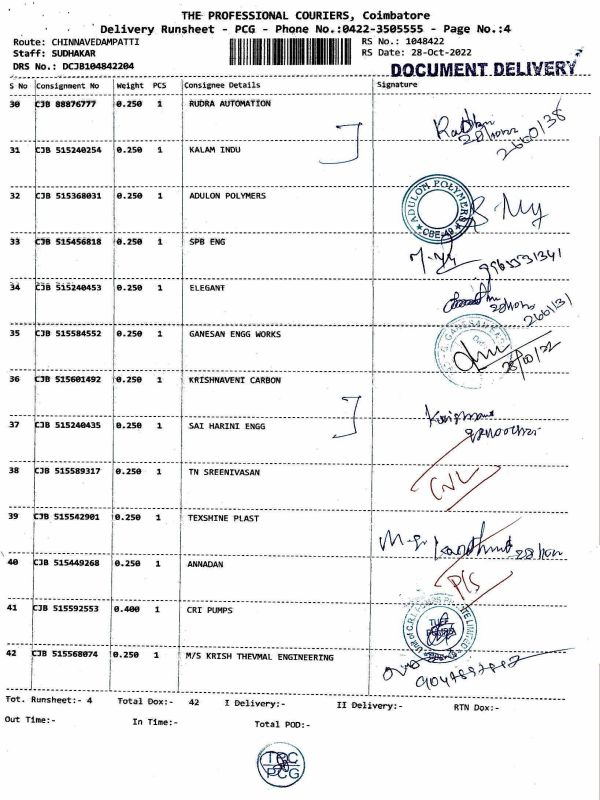 THE PROFESSIONAL COURIERS, Coimbatore
Delivery Runsheet - PCG - Phone No.:0422-3505555 - Page No.:4
Route: CHINNAVEDAMPATTI RS No.: 1048422
Staff: SUDHAKAR RS Date: 28-Oct-2022
DRS No.: DCJB104842204 DOCUMENT DELIVERY
S No Consignment No Weight PCS Consignee Details Signature
30 CJB 88876777 0.250 1 RUDRA AUTOMATION
2660138
31 CJB 515240254 0.250 1 KALAM INDU
32 CJB 515368031 0.250 1 ADULON POLYMERS
ADULON POLYMERS
CBE-49
33 CJB 515456818 0.250 1 SPB ENG
34 CJB 515240453 0.250 1 ELEGANT
2660131
35 CJB 515584552 0.250 1 GANESAN ENGG WORKS
36 CJB 515601492 0.250 1 KRISHNAVENI CARBON
37 CJB 515240435 0.250 1 SAI HARINI ENGG
38 CJB 515589317 0.250 1 TN SREENIVASAN
CNL
39 CJB 515542901 0.250 1 TEXSHINE PLAST
40 CJB 515449268 0.250 1 ANNADAN
P/S
41 CJB 515592553 0.400 1 CRI PUMPS
42 CJB 515568074 0.250 1 M/S KRISH THEVMAL ENGINEERING
Tot. Runsheet:- 4 Total Dox:- 42 I Delivery:- II Delivery:- RTN Dox:-
Out Time:- In Time:- Total POD:-
PCG